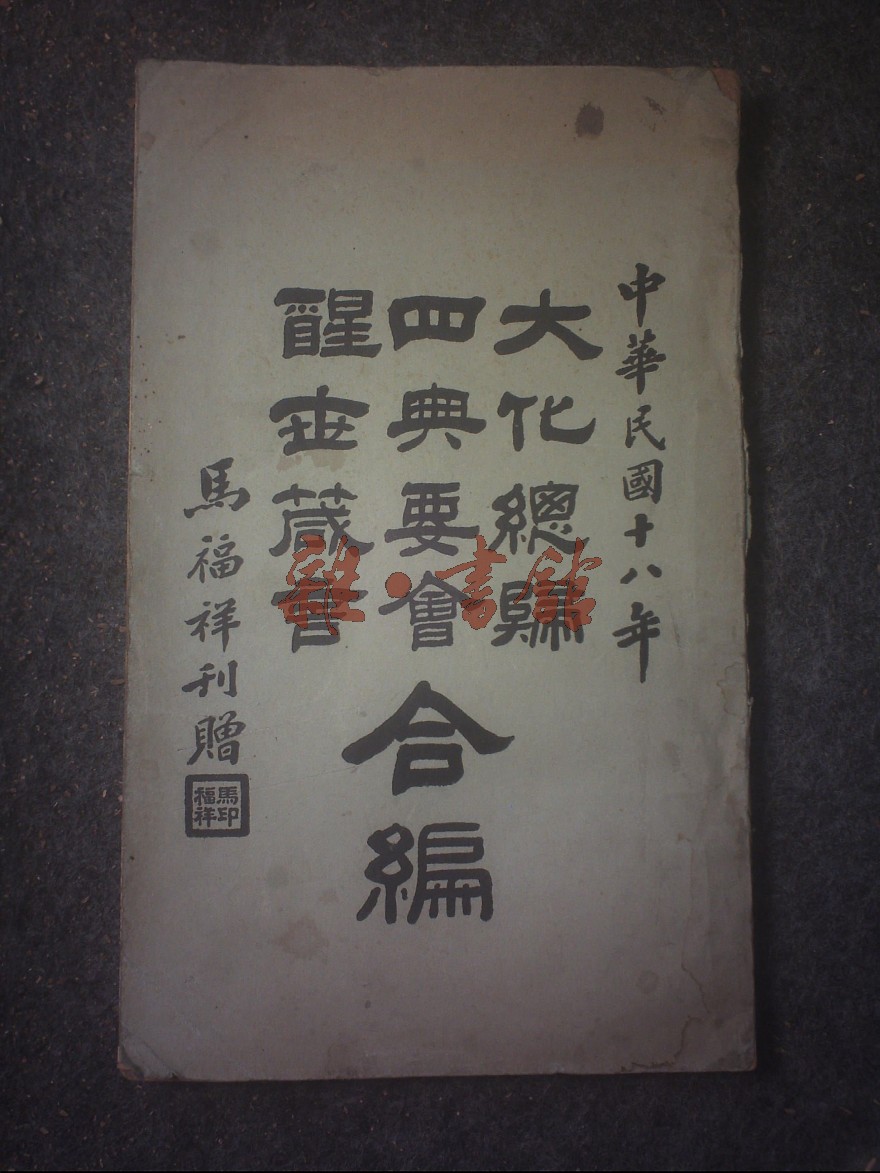 中華民國十八年
大化總歸
四典要會
醒世箴言
合編
馬福祥刊贈
馬福祥印
雜·書館